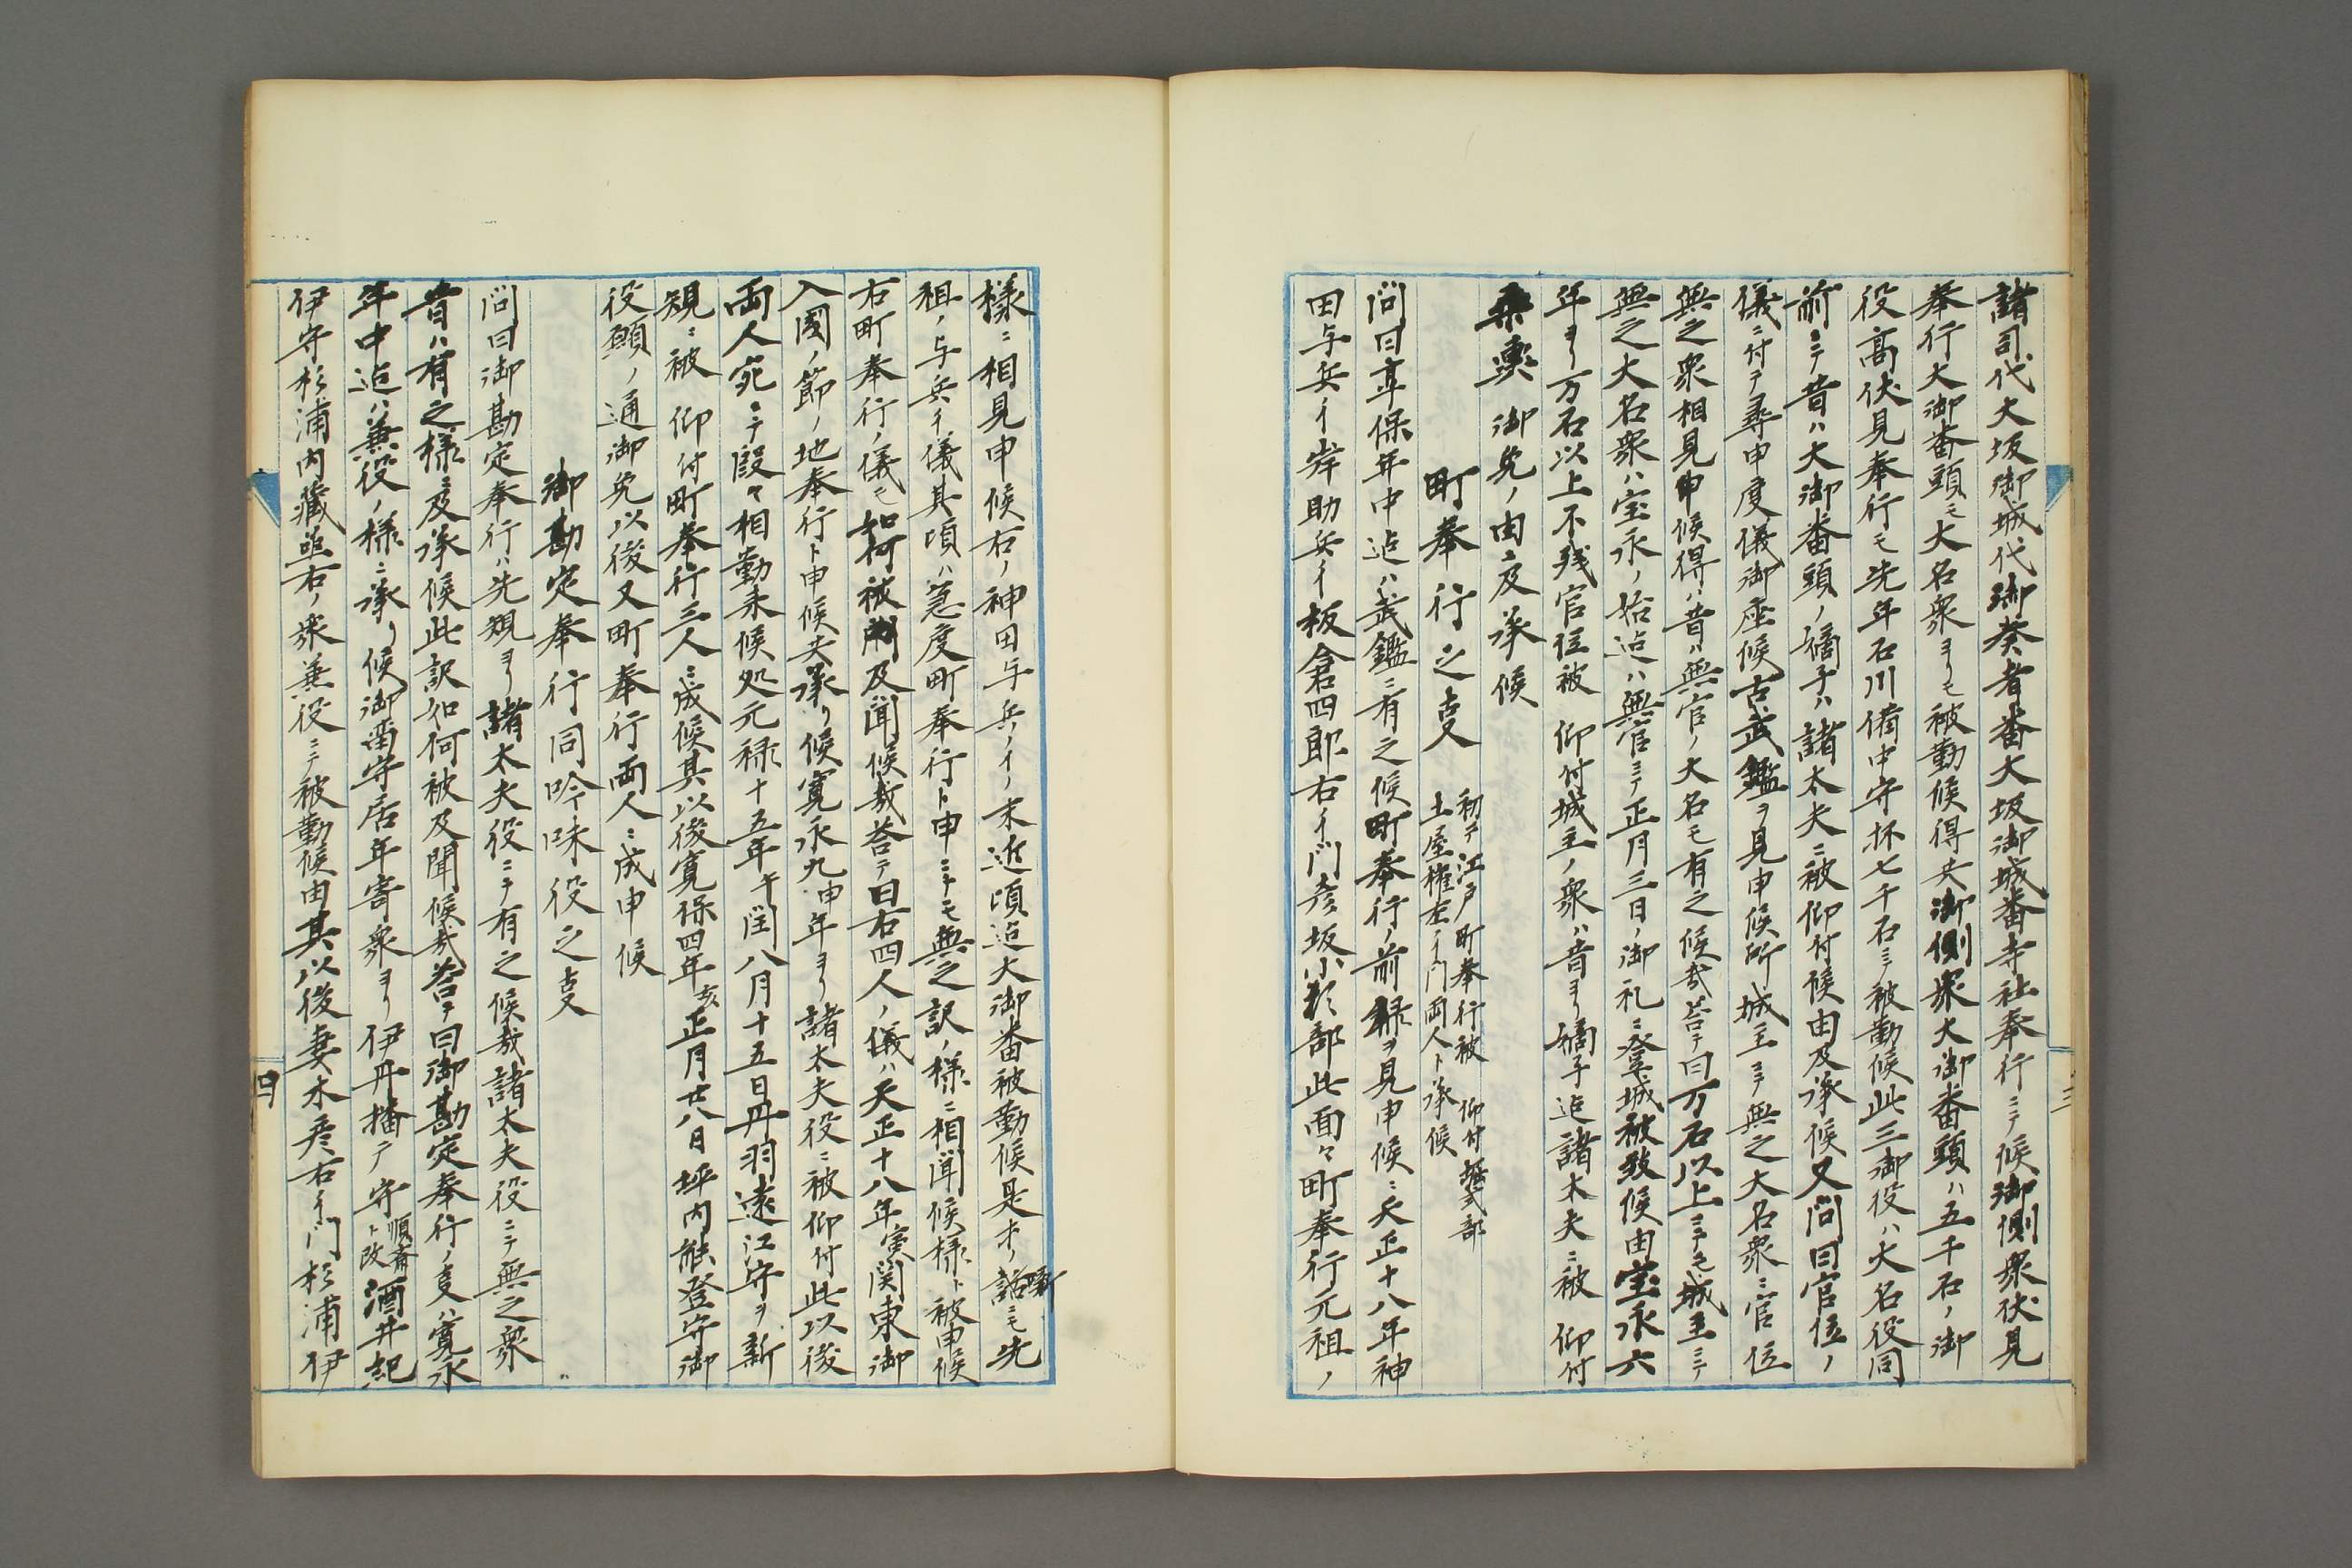 諸司代大坂御城代御奏者番大坂御城番寺社奉行ニテ候御側衆伏見
奉行大御番頭モ大名衆ヨリモ被勤候得共御側衆大御番頭ハ五千石ノ御
役高伏見奉行モ先年石川備中守杯七千石ニテ被勤候此三御役ハ大名役同
前ニテ昔ハ大御番頭ノ嫡子ハ諸太夫ニ被仰付候由及承候又問曰官位ノ
儀ニ付テ尋申度儀御座候古武鑑ヲ見申候所城主ニテ無之大名衆ニ官位
無之衆相見申候得ハ昔ハ無官ノ大名モ有之候哉答テ曰万石以上ニテモ城主ニテ
無之大名衆ハ宝永ノ始迄ハ無官ニテ正月三日ノ御礼ニ登城被致候由宝永六
年ヨリ万石以上不残官位被 仰付城主ノ衆ハ昔ヨリ嫡子迄諸太夫ニ被 仰付
乗輿 御免ノ由ニ及承候
町奉行之㕝 初テ江戸町奉行被 仰付堀式部
土屋権左イ門両人ト承候
問曰享保年中迄ハ武鑑ニ有之候町奉行ノ前録ヲ見申候ニ天正十八年神
田与兵イ岸助兵イ板倉四郎右イ門彦坂小形部此面々町奉行元祖ノ
三
様ニ相見申候右ノ神田与兵イノ末近頃迄大御番被勤候是ホノ噺話ニモ先
祖ノ与兵イ儀其頃ハ急度町奉行ト申ニテモ無之訳ノ様ニ相聞候様ト被申候
右町奉行ノ儀モ如何被聞及聞候哉答テ曰右四人ノ儀ハ天正十八年寅関東御
入国ノ節ノ地奉行ト申候夫承リ候寛永九申年ヨリ諸太夫役ニ被仰付此以後
両人宛ニテ段々相勤来候処元禄十五年午閏八月十五日丹羽遠江守ヲ新
規ニ被 仰付町奉行三人ニ成候其以後寛保四年亥正月廿八日坪内能登守御
役願ノ通御免以後又町奉行両人ニ成申候
御勘定奉行同吟味役之㕝
問曰御勘定奉行ハ先規ヨリ諸太夫役ニテ有之候哉諸太夫役ニテ無之衆
昔ハ有之様ニ及承候此訳如何被及聞候哉答テ曰御勘定奉行ノ㕝ハ寛永
年中迄ハ兼役ノ様ニ承リ候御留守居年寄衆ヨリ伊丹播广守順斎ト改酒井紀
伊守杉浦内蔵亟右ノ衆兼役ニテ被勤候由其以後妻木彦右イ門杉浦伊
四